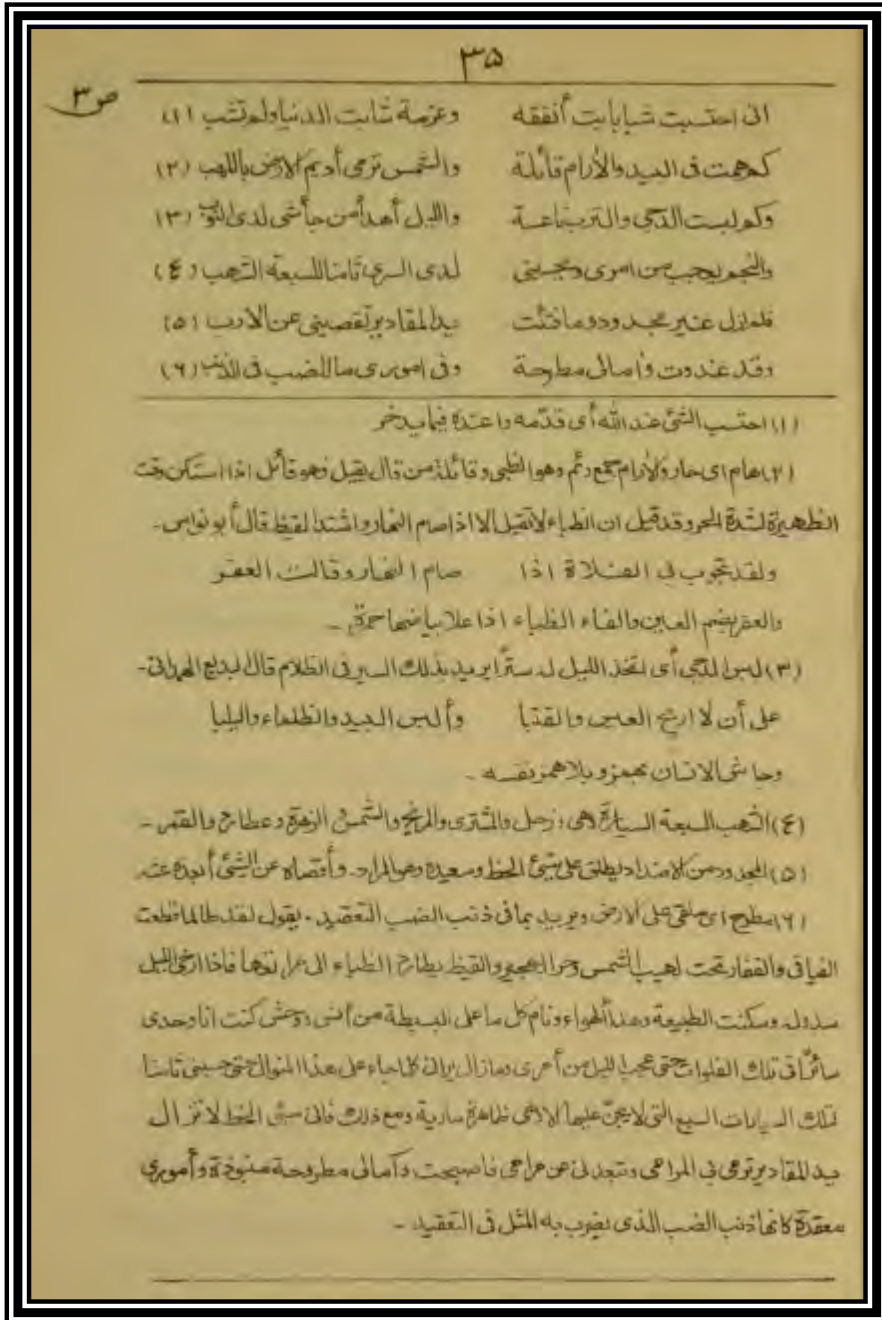 ٣٥
ص ٣
انى احتسبت شبابا بت أنفقه وعزمة شابت الدنيا ولم تشب (١)
كم همت فى البيد والأرام قائلة والشمس ترمى أديم الارض باللهب (٢)
وكم لبست الدجى والترب ناعسة والليل أهدأ من جأشى لدى النوب (٣)
والنجم يعجب من امرى ويحسبنى لدى السرى ثامنا للسبعة الشهب (٤)
فلم ازل غير مجدود وما فتئت يد المقادير تقصينى عن الارب (٥)
وقد غدوت وأمالى مطرحة وفى امورى ما للضب فى الذنب (٦)
(١) احتسب الشئ عند الله أى قدّمه واعتده فيما يدخر
(٢) هام اى حار والأرام جمع رئم وهو الظبى وقائلة من قال يقيل فهو قائل اذا استكن وقت
الظهيرة لشدة الحر وقد قيل ان الظباء لا تقيل الا اذا صام النهار واشتد القيظ قال أبو نواس -
ولقد تجوب بى الفلاة اذا صام النهار وقالت العفر
والعفر بضم العين والفاء الظباء اذا علا بياضها حمرة -
(٣) لبس الدجى أى اتخذ الليل له سترًا يريد بذلك السير فى الظلام قال البديع الهمدانى -
على أن لا اريح العيس والقتبا وألبس البيد والظلماء واليلبا
وجاشى الانسان بهمز وبلا همز نفسه -
(٤) الشهب السبعة السيارة هى: زحل والمشترى والمريخ والشمس الزهرة وعطارد والقمر -
(٥) المجدود من الاضداد يطلق على سيئ الحظ وسعيده وهو المراد. وأقصاه عن الشئ أبعده عنه
(٦) مطرح اى ملقى على الارض ويريد بما فى ذنب الضب التعقيد. يقول لقد طالما قطعت
الفيافى والقفار تحت لهيب الشمس وحر الهجير والقيظ يطارد الظباء الى فاذا ارخى الليل
سدوله وسكنت الطبيعة وهدأ الهواء ونام كل ما على البسيطة من أنس ووحش كنت انا وحدى
سائرًا فى تلك الفلوات حتى عجب الليل من أمرى وما زال يرانى كلما جاء على هذا المنوال حتى حسبنى ثامنا
لتلك السيارات السبع التى لا يجنّ عليها الا وهى ظاهرة سارية ومع ذلك فانى سيئ الحظ لا تزال
يد المقادير ترمى بى المرامى وتبعدنى عن مرامى فاصبحت وآمالى مطروحة منبوذة وأمورى
معقدة كانها ذنب الضب الذى يضرب به المثل فى التعقيد -